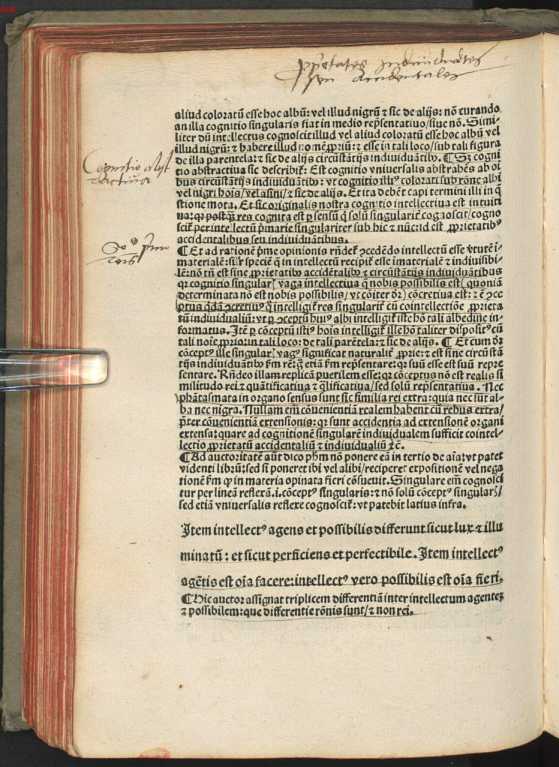 aliud coloratū esse hoc albū: vel illud nigrū ⁊ sic de alijs: nō curando
an illa cognitio singularis fiat in medio rep̃sentatiuo/siue nō. Simi-
liter dū intellectus cognoscit illud vel aliud coloratū esse hoc albū vel
illud nigrū: ⁊ habere illud nomē ꝓpriū: ⁊ esse in tali loco/sub tali figura
de illa parentela: ⁊ sic de alijs circūstātijs indiuiduātibꝰ. ¶ Sꝫ cogni
tio abstractiua sic describit᷑. Est cognitio vniuersalis abstrahēs ab oī
bus circūstātijs indiuiduātibꝰ: vt cognitio illiꝰ colorati sub rōne albi
vel nigri/hoīs/vel asini/ ⁊ sic de alijs. Et ita debēt capi termini illi in q̄
stione mota. Et sic originalis nostra cognitio intellectiua est intuiti
ua: qꝛ postq̄ res cognita est ꝑ sensū q̄ solū singularit̃ cognoscit/cogno
scit᷑ per intellectū ṗmarie singulariter sub hic ⁊ nūc: id est ꝓprietatibꝰ
accidentalibus seu indiuiduantibus.
¶ Et ad rationē ṗme opinionis rñdet᷑ ꝯcedēdo intellectū esse virtutē i-
materialē: sil̃r speciē q̄ in intellectū recipit᷑ esse imaterialē ⁊ indiuisibi-
lē: nō tñ est sine ꝓprietatibꝰ accidētalibꝰ ⁊ circūstātijs indiuiduātibus
qꝛ cognitio singularꝭ vaga intellectiua q̄ nobis possibilis est/ quoniā
determinata nō est nobis possibilis/ vt cōiter dr̄) cōcretiua est: ⁊ ē ꝯce
ptus q̄dā ꝯcretiuꝰ q̄ intelligit᷑ res singularit̃ cū cointellectiōe ꝓprieta
tū indiuidualiū: vt ꝑ ꝯceptū huiꝰ albi intelligit᷑ ist: hō tali albedīe in-
formatus. Itē ꝑ cōceptū istiꝰ hoīs intelligit᷑ ille hō taliter dispositꝰ cū
tali noīe ꝓprio: in tali loco: de tali parētela: ⁊ sic de alijs. ¶ Et cum dr̄
cōceptꝰ ille singularꝭ vagꝰ significat naturalit̃ ꝓprie: ⁊ est sine circūstā
tijs indiuiduātibꝰ fm̄ rē: g̊ etiā fm̄ rep̃sentare: qꝛ suū esse est suū rep̃re
sentare. Rñdeo illam replicā puerilem esse: qꝛ cōceptus nō est realis si
militudo rei ⁊ quātificatiua ⁊ q̄lificatiua/sed solū rep̃sentatiua. Nec
phātasmata in organo sensus sunt sic similia rei extra: quia nec sūt al-
ba nec nigra. Nullam em̄ cōuenientiā realem habent cū rebus extra/
p̄ter cōuenientiā extensionis: qꝛ sunt accidentia ad extensionē organi
extensa: quare ad cognitionē singularē indiuidualem sufficit cointel-
lectio ꝓprietatū accidentaliū ⁊ indiualiū ⁊c̄.
¶ Ad auctoritatē aūt dico ph̃m nō ponere eā in tertio de aīa: vt patet
videnti librū: sed si poneret ibi vel alibi/recipere expositionē vel nega
tionē fm̄ ꝙ in materia opinata fieri cōsueuit. Singulare em̄ cognosci
tur per lineā reflexā.i. cōceptꝰ singularis: ⁊ nō solū cōceptꝰ singularꝭ/
sed etiā vniuersalis reflexe cognoscit᷑: vt patebit latius infra.
Item intellectꝰ agens et possibilis differunt sicut lux ⁊ illu
minatū: et sicut perficiens et perfectibile. Item intellectꝰ
agētis est oīa facere: intellectꝰ vero possibilis est oīa fieri.
¶ Hic auctor assignat triplicem differentiā inter intellectum agentē
⁊ possibilem: que differentie rōnis sunt/ ⁊ non rei.